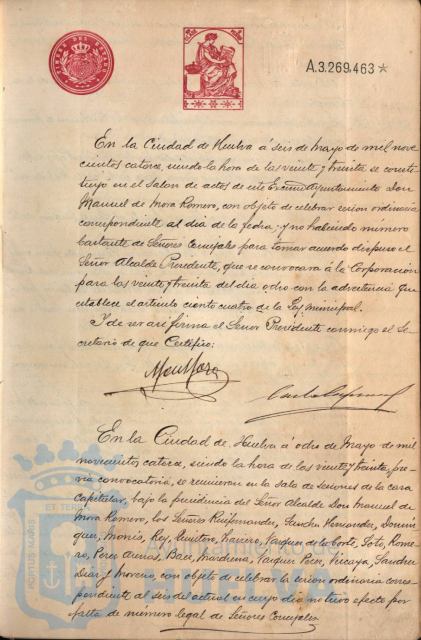 A.3.269.463
En la Ciudad de Huelva á seis de Mayo de mil nove
cientos catorce, siendo la hora de las veinte y treinta se consti
tuyó en el Salon de actos de este Excmo Ayuntamiento Don
Manuel de Mora Romero, con objeto de celebrar sesion ordinaria
correspondiente al dia de la fecha; y no habiendo número
bastante de Señores Concejales para tomar acuerdo dispuso el
Señor Alcalde Presidente, que se convocara á la Corporación
para las veinte y treinta del dia ocho con la advertencia que
establece el artículo ciento cuatro de la Ley municipal.
Y de ser asi firma el Señor Presidente conmigo el Se
cretario de que Certifico:
En la Ciudad de Huelva á ocho de Mayo de mil
novecientos catorce, siendo la hora de las veinte y treinta, pre
via convocatoria, se reunieron en la Sala de sesiones de la casa
capitular, bajo la presidencia del Señor Alcalde Don Manuel de
Mora Romero, los Señores Ruifernandez, Sanchez Hernandez, Domin
guez, Monis, Rey, Quintero, Vazquez de la Corte, Soto, Rome
ro, Perez Baez, Marchena, Vazquez Vizcaya, Sanchez
Diaz y Moreno, con objeto de celebrar la sesion ordinaria corres
pondiente al seis del actual en cuyo dia no tuvo efecto por
falta de número legal de Señores Concejales.
PORTUS MARIS
ET TERRÆ
Ayuntamiento de